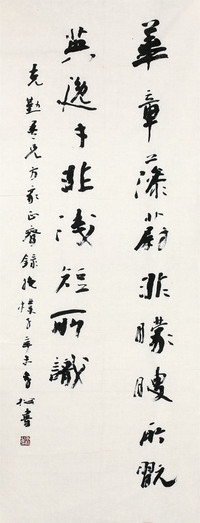 華章藻蔚非矇瞍所翫
英逸才非淺短所識
克勤吾兄方家正 錄抱樸子辛未 書